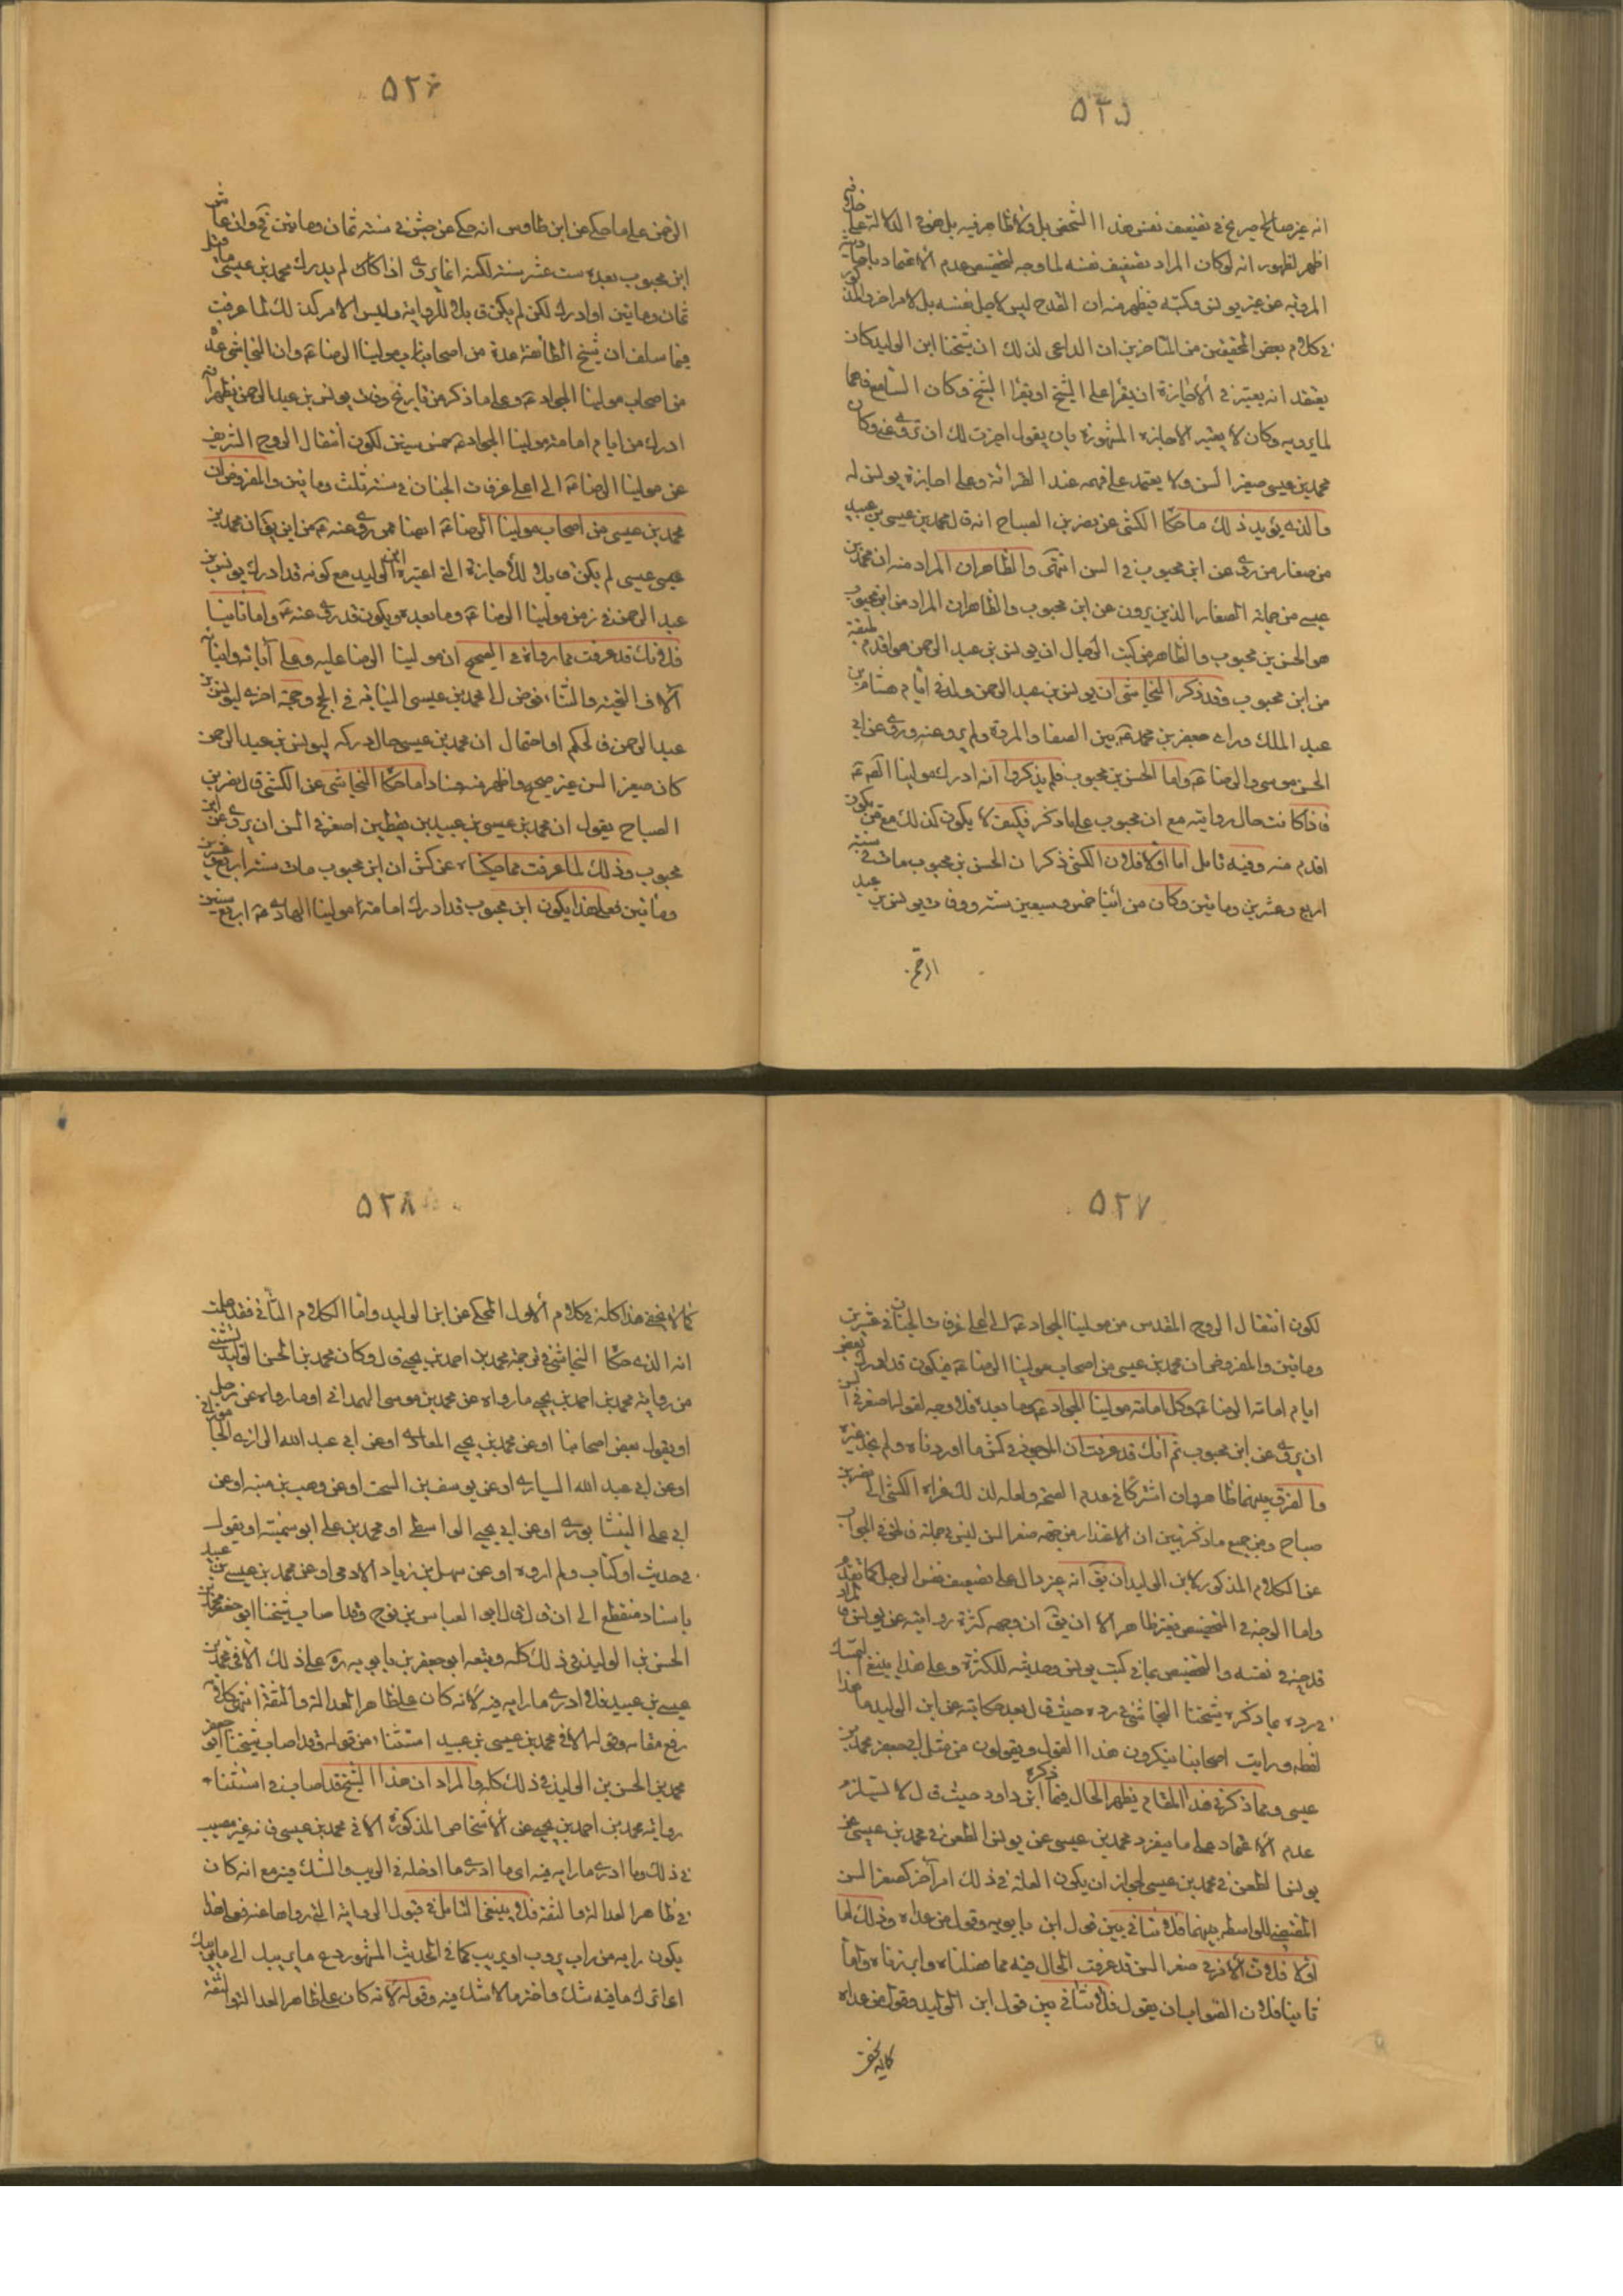 ۵۲۵
انه غير صالح صريح في تضعيف نفس هذا الشخص بل ولا ظاهر فيه بل هو في الدلالة على خلافه
اظهر لظهور انه لو كان المراد تضعيف نفسه لما وجه لتخصيص عدم الاعتماد
المروية عن غير يونس وكتبه فيظهر منه ان القدح ليس لاجل نفسه بل لامر اخر والمذكور
في كلام بعض المحققين من المتاخرين ان الداعي لذلك ان شيخنا ابن الوليد كان
يعتقد انه يعتبر في الاجازة ان يقرا على الشيخ او يقرا الشيخ وكان السامع فاهما
لما يرويه وكان لا يعتبر الاجازة المشهورة بان يقول اجزت لك ان تروي عني وكان
محمد بن عيسى صغير السن ولا يعتمد على فهمه عند القرائة وعلى اجازة يونس له
والذي يؤيد ذلك ما حكاه الكشي عن نصر بن الصباح انه قال محمد بن عيسى بن عبيد
من صغار من روى عن ابن محبوب في السن انتهى والظاهر ان المراد منه ان محمد بن
عيسى من جملة الصغار الذين يروون عن ابن محبوب والظاهر ان المراد من ابن محبوب
هو الحسن بن محبوب والظاهر من كتب الرجال ان يونس بن عبد الرحمن هو اقدم طبقة
من ابن محبوب وقد ذكر النجاشي ان يونس بن عبد الرحمن ولد في ايام هشام بن
عبد الملك وراى جعفر بن محمد ع بين الصفا والمروة ولم يرو عنه وروى عن ابي
الحسن موسى والرضا ع واما الحسن بن محبوب فلم يذكروا انه ادرك مولينا
فاذا كانت حال روايته مع ابن محبوب على ما ذكر فكيف لا يكون كذلك مع من يكون
اقدم منه وفيه تامل اما اولا فلان الكشي ذكر ان الحسن بن محبوب مات في سنة
اربع وعشرين ومائتين وكان من ابناء خمس وسبعين سنة ووفات يونس بن عبد
الرحمن
۵۲۶
الرحمن على ما حكي عن ابن طاوس انه حكى عن في سنة ثمان ومائتين فح وان عاش
ابن محبوب بعده ست عشر سنة لكنه انما يروي اذا كان لم يدرك محمد بن عيسى ما قبل
ثمان ومائتين او ادرك لكن لم يكن قابلا للرواية وليس الامر كذلك لما عرفت
فيما سلف ان شيخ الطائفة عده من اصحاب مولينا الرضا ع وان النجاشي عده
من اصحاب مولينا الجواد ع وعلى ما ذكر من تاريخ وفات يونس بن عبد الرحمن يظهر انه
ادرك من ايام امامة مولينا الجواد ع خمس سنين لكون انتقال الروح الشريف
عن مولينا الرضا ع الى اعلى غرفات الجنان في سنة ثلث ومائتين والمفروض ان
محمد بن عيسى من اصحاب مولينا الرضا ع ايضا ممن روى عنه ع فمن اين يق ان محمد بن
عيسى لم يكن قابلا للاجازة التي اعتبره ابن الوليد مع كونه قد ادرك يونس بن
عبد الرحمن في زمن مولينا الرضا ع وما بعده ويكون قد روى عنه ع واما ثانيا
فلانك قد عرفت مما رواه في الصحيح ان مولينا الرضا عليه وعلى آبائه وابنائه
آلاف التحية والثناء فوض الى محمد بن عيسى النيابة في الحج وحجة اخرى ليونس بن
عبد الرحمن فالحكم او احتمال ان محمد بن عيسى حال دركه ليونس بن عبد الرحمن
كان صغير السن غير صحيح واظهر منه فسادا ما حكاه النجاشي عن الكشي قال نصر بن
الصباح يقول ان محمد بن عيسى بن عبيد بن يقطين اصغر في السن ان يروي عن ابن
محبوب وذلك لما عرفت مما حكيناه عن كش ان ابن محبوب مات سنة اربع وعشرين
ومائتين فعلى هذا يكون ابن محبوب قد ادرك امامة مولينا الهادي ع اربع سنين
۵۲۷
لكون انتقال الروح المقدس من مولينا الجواد ع الى اعلى غرفات الجنان في عشرين
ومائتين والمفروض ان محمد بن عيسى من اصحاب مولينا الرضا ع فيكون قد ادرك بعض
ايام امامة الرضا ع وكل امامة مولينا الجواد ع وما بعده فلا وجه لقوله اصغر في السن
ان يروي عن ابن محبوب ثم انك قد عرفت ان الموجود في كش ما اوردناه ولم يجد غيره
والفرق بينهما ظاهر وان اشتركا في عدم الصحة ولعله لذلك عزاه الكشي الى نصر بن
صباح ومن جميع ما ذكر تبين ان الاعتذار من جهة صغر السن ليس في محله فالحق في الجواب
عن الكلام المذكور لابن الوليد ان يق انه غير دال على تضعيف نفس الرجل كما تقدم
واما الوجه في التخصيص فغير ظاهر الا ان يق ان وجهه كثرة روايته عن يونس فاراد
قدحه في نفسه والتخصيص بما في كتب يونس وحديثه للكثرة وعلى هذا ينبغي التمسك
في رده بما ذكره شيخنا النجاشي في رده حيث قال بعد حكايته عن ابن الوليد ما هذا
لفظه ورايت اصحابنا ينكرون هذا القول ويقولون من مثل ابي جعفر محمد بن
عيسى ومما ذكر في هذا المقام يظهر الحال فيما ذكره ابن داود حيث قال لا يستلزم
عدم الاعتماد على ما ينفرد محمد بن عيسى عن يونس الطعن في محمد بن عيسى عن
يونس الطعن في محمد بن عيسى لجواز ان يكون العلة في ذلك امر آخر كصغر السن
المقتضي للواسطة بينهما فلا تنافي بين قول ابن بابويه وقول من عداه وذلك اما
اولا فلان الامر في صغر السن قد عرفت الحال فيه مما فصلناه وابرزناه واما
ثانيا فلان الصواب ان يقول فلا تنافي بين قول ابن الوليد وقول من عداه
كما لا يخفى
۵۲۸
كما لا يخفى هذا كله في كلام الاول المحكي عن ابن الوليد واما الكلام الثاني فقد علمت
انه الذي حكاه النجاشي في ترجمة محمد بن احمد بن يحيى قال وكان محمد بن الحسن الوليد يستثنى
من رواية محمد بن احمد بن يحيى ما رواه عن محمد بن موسى الهمداني او ما رواه عن رجل
او يقول بعض اصحابنا او عن محمد بن يحيى المعاذي او عن ابي عبد الله الرازي الجاموراني
او عن ابي عبد الله السياري او عن يوسف بن السحت او عن وهب بن منبه او عن
ابي علي النيشابوري او عن ابي يحيى الواسطي او محمد بن علي ابو سمينة او يقول
في حديث او كتاب ولم اروه او عن سهل بن زياد الادمي او عن محمد بن عيسى بن عبيد
باسناد منقطع الى ان قال قال ابو العباس بن نوح وقد اصاب شيخنا ابو جعفر محمد بن
الحسن بن الوليد في ذلك كله وتبعه ابو جعفر بن بابويه ره على ذلك الا في محمد بن
عيسى بن عبيد فلا ادري ما رابه فيه لانه كان على ظاهر العدالة والثقة انتهى كلامه
رفع مقامه وقوله الا في محمد بن عيسى بن عبيد استثناء من قوله وقد اصاب شيخنا ابو جعفر
محمد بن الحسن بن الوليد في ذلك كله والمراد ان هذا الشيخ قد اصاب في استثناء
رواية محمد بن احمد بن يحيى عن الاشخاص المذكورة الا في محمد بن عيسى فانه غير مصيب
في ذلك وما ادري ما رابه فيه اي ما ادري ما ادخله في الريب والشك فيه مع انه كان
في ظاهر العدالة والثقة فلا ينبغي التامل في قبول الرواية التي رواها عنه فعلى هذا
يكون رابه من راب يروب او يريب كما في الحديث المشهور دع ما يريبك الى ما لا يريبك
اي اترك ما فيه شك واختر ما لا شك فيه وقوله لانه كان على ظاهر العدالة والثقة